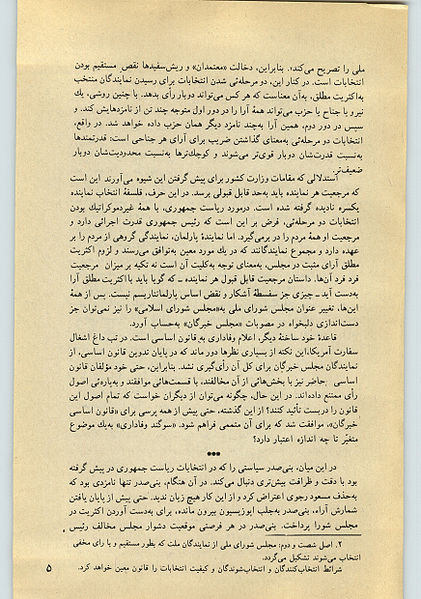 ملی را تصریح می‌کند». بنابراین، دخالت «معتمدان» و ریش‌سفیدها نقص مستقیم بودن
انتخابات است. در کنار این، دو مرحله‌ئی شدن انتخابات برای رسیدن نمایندگان منتخب
به‌اکثریت مطلق، به‌آن معناست که هر کس می‌تواند دوبار رأی بدهد. با چنین روشی، یك
نیرو یا جناح یا حزب می‌تواند همهٔ آرا را در دور اول متوجه چند تن از نامزدهایش کند. و
سپس در دور دوم، همین آرا به‌چند نامزد دیگر همان حزب داده خواهد شد. در واقع،
انتخابات دو مرحله‌ئی به‌معنای گذاشتن ضریب برای آرای هر جناحی است: قدرتمندها
به‌نسبت قدرت‌شان دوبار قوی‌تر می‌شوند و کوچك‌ترها به‌نسبت محدودیت‌شان دوبار
ضعیف‌تر.
استدلالی که مقامات وزارت کشور برای پیش گرفتن این شیوه می‌آورند این است
که مرجعیت هر نماینده باید به‌حد قابل قبولی برسد. در این حرف، فلسفهٔ انتخاب نماینده
یکسره نادیده گرفته شده است. درمورد ریاست جمهوری، با همهٔ غیردموکراتیك بودن
انتخابات دو مرحله‌ئی، فرض بر این است که رئیس جمهوری قدرت اجرائی دارد و
مرجعیت او همهٔ مردم را در برمی‌گیرد. اما نمایندهٔ پارلمان، نمایندگی گروهی از مردم را بر
عهده دارد و مجموع نمایندگانند که در یك مورد معین به‌توافق می‌رسند و لزوم اکثریت
مطلق آرای مثبت در مجلس، به‌معنای توجه به‌کلیت آن است نه تکیه بر میزان مرجعیت
فرد فرد آن‌ها. داستان مرجعیت قابل قبول هر نماینده ــ که گویا باید با اکثریت مطلق آرا
به‌دست آید ــ چیزی جز سفسطهٔ آشکار و نقض اساس پارلمانتاریسم نیست. پس از همهٔ
این‌ها، تغییر عنوان مجلس شورای ملی به‌«مجلس شورای اسلامی» را نیز نمی‌توان جز
دست‌اندازی دلبخواه در مصوبات «مجلس خبرگان» به‌حساب آورد.
قاعدهٔ خود ساختهٔ دیگر، اعلام وفاداری به‌قانون اساسی است. در تب داغ اشغال
سفارت آمریکا،این نکته از بسیاری نظرها دور ماند که در پایان تدوین قانون اساسی، از
نمایندگان مجلس خبرگان برای کل آن رأی‌گیری نشد. بنابراین، حتی خود مؤلفان قانون
اساسی حاضر نیز با بخش‌هائی از آن مخالفند، با قسمت‌هائی موافقند و به‌پاره‌ئی اصول
رأی ممتنع داده‌اند. در این حال، چگونه می‌توان از دیگران خواست که تمام اصول این
قانون را دربست تأئید کنند؟ از این گذشته، حتی پیش از همه پرسی برای «قانون اساسی
خبرگان»، موافقت شد که برای آن متممی فراهم شود. «سوگند وفاداری» به‌یك موضوع
متغیّر تا چه اندازه اعتبار دارد؟
•••
در این میان، بنی‌صدر سیاستی را که در انتخابات ریاست جمهوری در پیش گرفته
بود با دقت و ظرافت بیش‌تری دنبال می‌کند. در آن هنگام، بنی‌صدر تنها نامزدی بود که
به‌حذف مسعود رجوی اعتراض کرد و از این کار هیچ زیان ندید. حتی پیش از پایان یافتن
شمارش آراء، بنی‌صدر به‌جلب اپوزیسیون بیرون مانده، برای به‌دست آوردن اکثریت در
مجلس شورا پرداخت. بنی‌صدر در هر فرصتی موقعیت دشوار مجلس مخالف رئیس
۲. اصل شصت و دوم: مجلس شورای ملی از نمایندگان ملت که بطور مستقیم و با رای مخفی
انتخاب می‌شوند تشکیل می‌گردد.
شرائط انتخاب‌کنندگان و انتخاب‌شوندگان و کیفیت انتخابات را قانون معین خواهد کرد.
۵